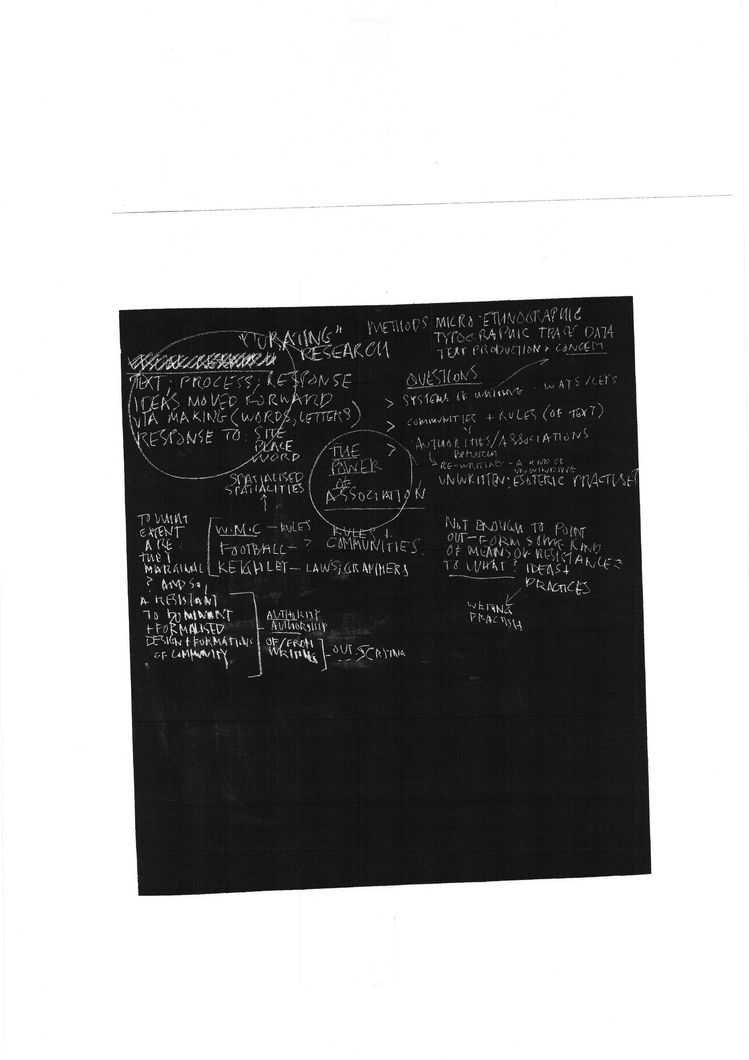 "CURATING"
RESEARCH
METHODS: MICRO-ETHNOGRAPHIC
TYPOGRAPHIC TRACE DATA
TEXT PRODUCTION + CONCEPT
TEXT; PROCESS; RESPONSE
IDEAS MOVED FORWARD
VIA MAKING (WORDS, LETTERS)
RESPONSE TO: SITE
PLACE
WORD
QUESTIONS
> SYSTEMS OF WRITING: WAYS/
> COMMUNITIES + RULES (OF TEXT)
> AUTHORITIES/ASSOCIATIONS
BETWEEN
RE-WRITING - A KIND OF
UNWINDING
UNWRITTEN: ESOTERIC PRACTICES?
THE
POWER
OF
ASSOCIATION
SPATIALISED
SPATIALITIES
W.M.C - RULES
FOOTBALL - ?
KEIGHLEY - LAWS; GRAMMERS
RULES +
COMMUNITIES
TO WHAT
EXTENT
ARE
THEY
MARGINAL
? AND SO,
A RESISTANT
TO DOMINANT
+ FORMALISED
DESIGN + FORMATIONS
OF COMMUNITY
AUTHORITY
AUTHORSHIP
OF/FROM
WRITING
OUT-SCRYING
NOT ENOUGH TO POINT
OUT-FORM SOME KIND
OF MEANS OF RESISTANCE =
TO WHAT? IDEAS +
PRACTICES
WRITING